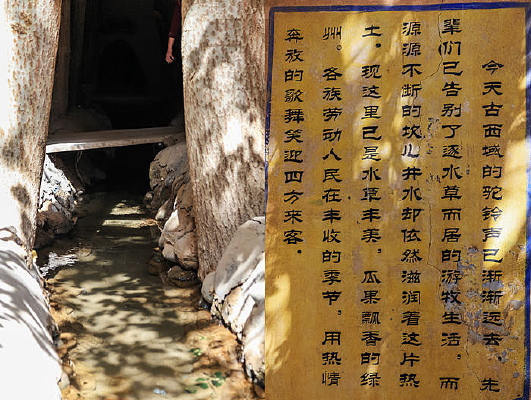 今天古西域的驼铃声已渐渐远去 先
辈们已告别了逐水草而居的游牧生活。而
源源不断的坎儿井水却依然滋润着这片热
土。现这里已是水草丰美，瓜果飘香的绿
州。各族劳动人民在丰收的季节，用热情
奔放的歌舞笑迎四方來客。